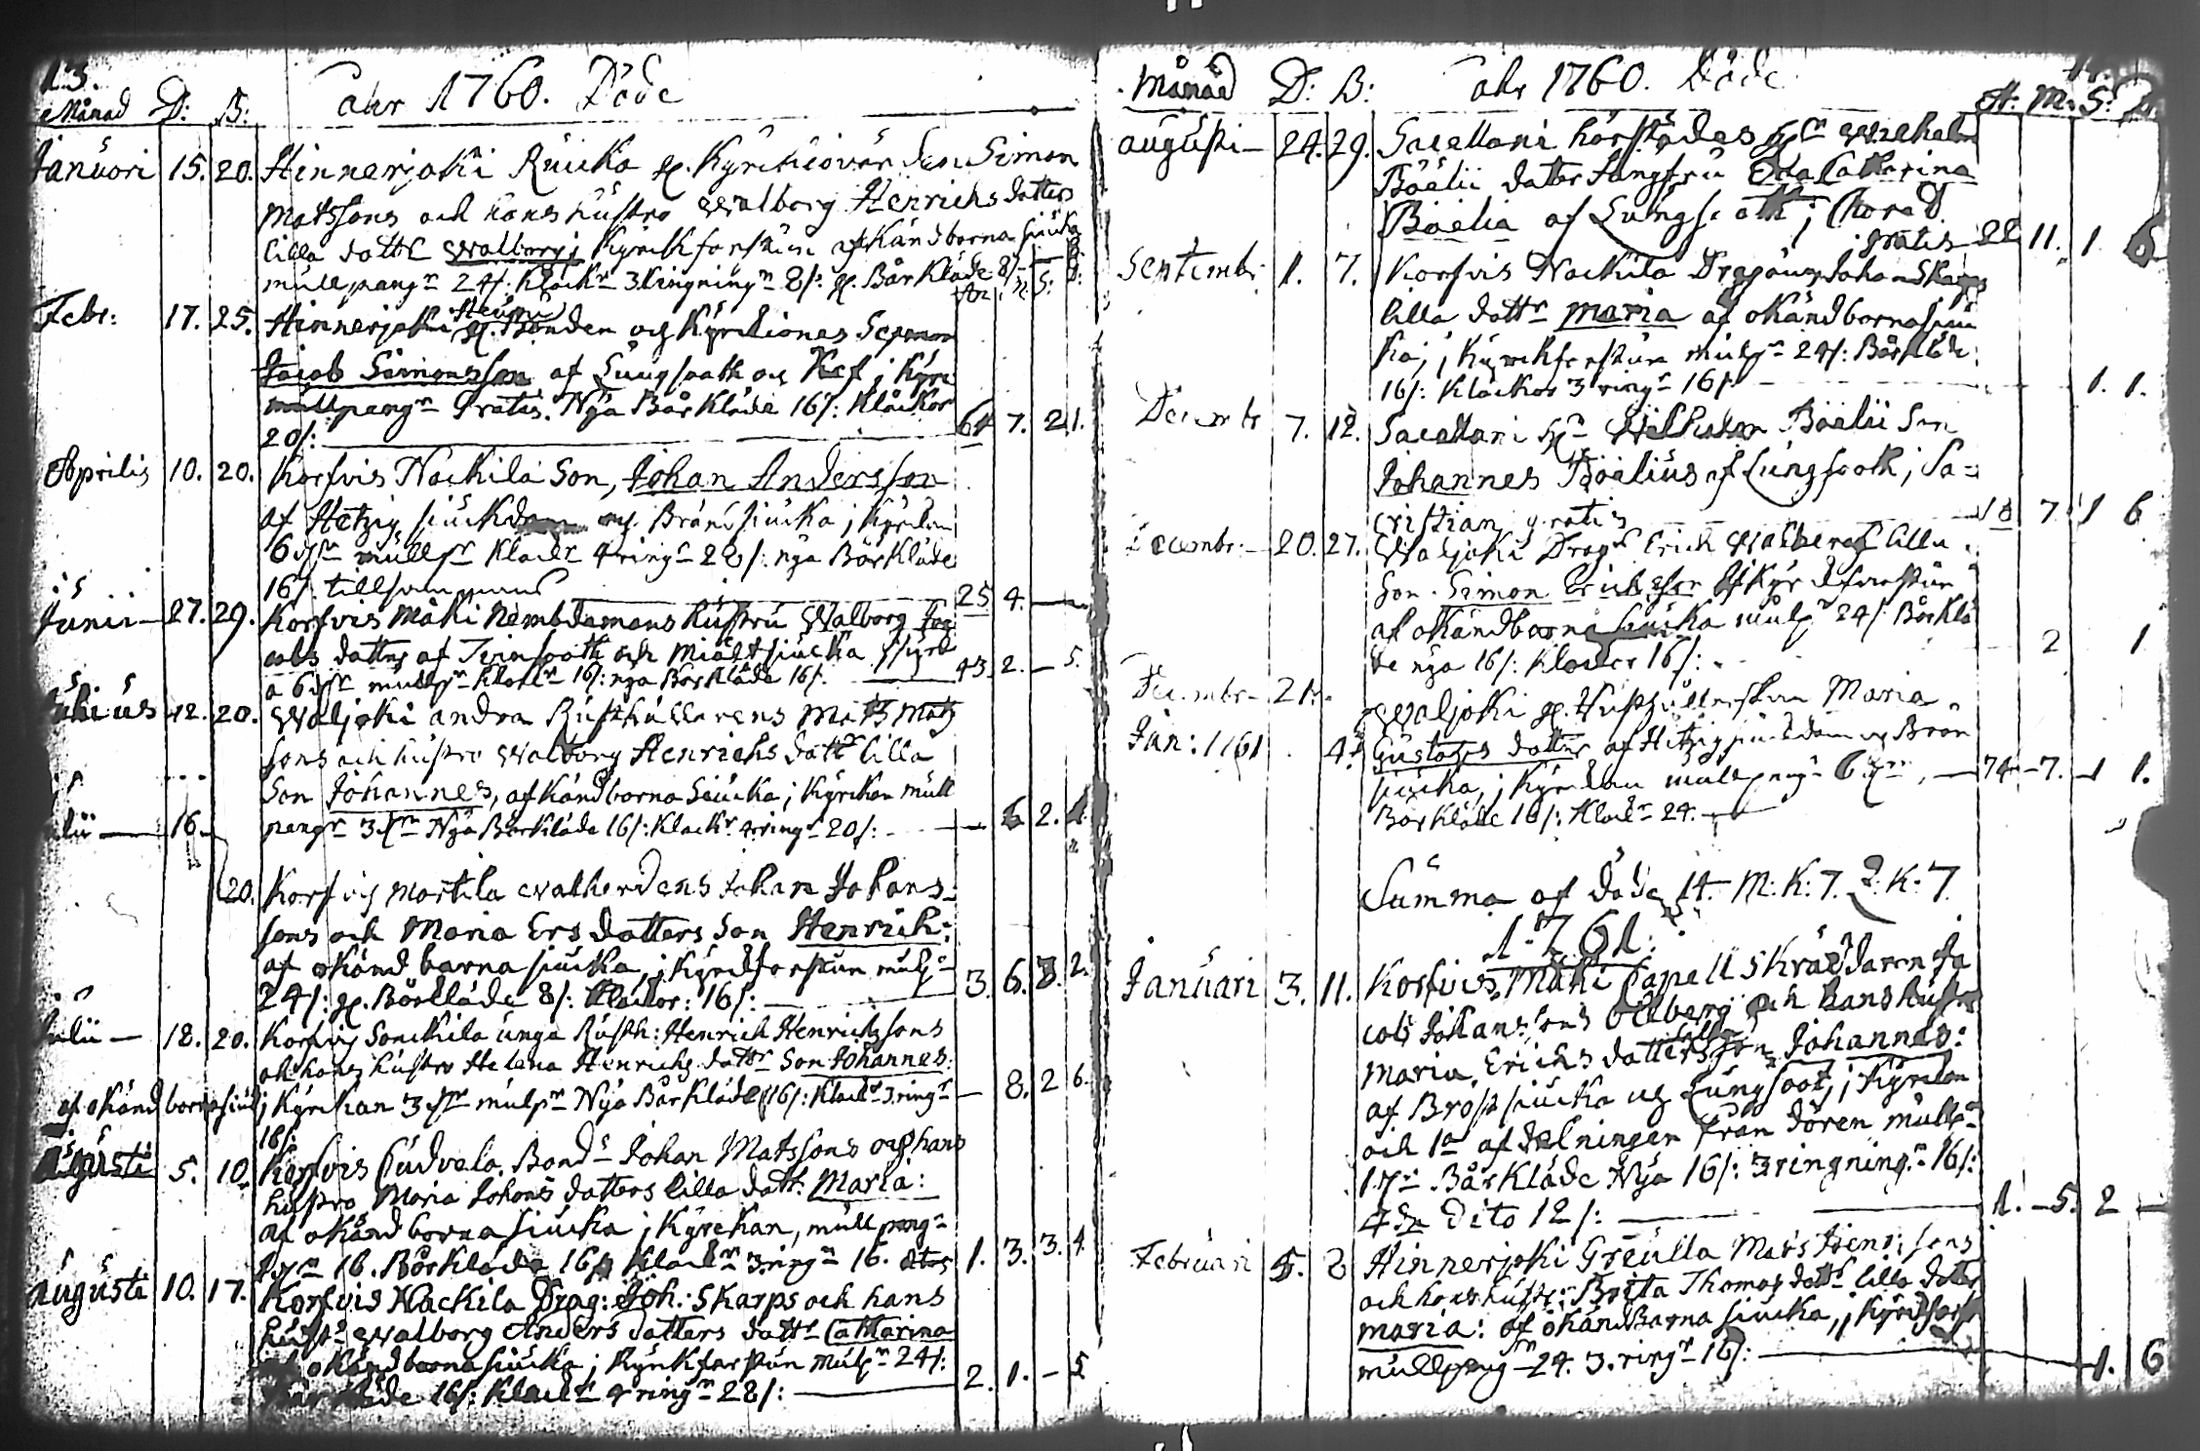 13.
Månad D: B: ahr 1760. Döde
Januari 15. 20. Hinnerjoki Ruicka Kyrckiovär Simon
Matssons och hans hustro Walborg Henrichs datters
lilla dottr Walborg i Kyrckforstun af okänd barna siucka
mullpengr 24/: Klockr 3 Ringningr 8/: gl. Bår Kläde 8/:
Febr: 17. 25. Hinnerjoki Heurni gl. Bonden och Kyrckiones
Jacob Simonsson af Lungsooth och Kef i Kyrc
mullpengr Gratis. Nya Bår Kläde 16/: Klåckor
20/: 61 7. 2. 1.
Aprilis 10. 20. Korfvis Nackila Son, Johan Andersson
af Hetzig siuckdom och Bränsiucka i Kyrckan
6 mullpr Klockr 4 ringr 28/: nya Bårkläde
16/: tillsammans 25 4. —
Junii — 27. 29. Korfvis Mäki Nembdemans hustru Walborg Jac
cobs datters af Tvinsooth och Mieltsiucka i Kyrck
a 6 mullpr Klockr 16/: nya Bårkläde 16/: 43. 2. — 5.
Julius 12. 20. Waljoki andra Rusthållarens Mats Matz
sons och hustro Walborg Henrichs dattr lilla
Son Johannes, af Känd barna Siucka i Kyrckan mull
16. pengr 3 Nya Bårkläde 16/: Klockr 4 ringr 20/: — — 6 2. 1.
20. Korfvis Mortila Johan Johans-
sons och Maria Ers datters Son Henrich:
af okänd barna siucka, i Kyrckforstun mulpr
24/: gl. Bårkläde 8/: Klackor: 16/: 3. 6. 3. 2.
Julii — 12. 20. Korfvis Sonckila unga Rusth: Henrich Henrichssons
och hans hustro Helena Henrichs dattr Son Johannes.
af okänd barna siuck i Kyrckan 3 mulpr Nya Bår Kläde 16/: Klockr 3 ringr — 8. 2 6.
16/:
Augusti 5. 10. Korfvis Cudvala Bondr Johan Matssons och hans
hustro Maria Johans datters lilla datt: Maria:
af okänd borna siucka i Kyrckan, mullpengr
16. Bårkläde 16/: Klockr 3 ringr 16. 1. 3. 3. 4
Augusti 10. 17. Korfvis Nackila Drag: Joh: Skarps och hans
hustr Walborg Anders datters dattr Catharina
okänd barnasiucka i Kyrckforstun mulpr 24/:
Bårkläde 16/: Klockr 4 ringr 28/: 2. 1. — 5
Månad D: B: ahr 1760. Döde
A: M: S: D:
Augusti — 24. 29. Sacellani härstädes Hr Wilhelm
Böelii dater Jungfru Eva Catharina
Böelia af Lungsooth i Chored
gratis — 22 11. 1. 6
Septembr. 1. 7. Korfvis Nackila Dragouns Johan Skarps
lilla dottr Maria af okänd barna siuc
ka, i Kyrckforstun mulpr 24/: Bårkläde
16/: Klåckor 3 ringr 16/: 1. 1.
Decembr 7. 12. Sacellani Hr Wilhelm Böelii Son
Johannes Böelius af Lungsooth i Sa=
cristian gratis 18 7 1 6
Decembr: — 20. 27. Waljoki Dragr Erich Walbergs lilla
Son Simon Erichsson i Kyrckforstun
af okänd barna siucka mulpr 24/: Bårklä
de nya 16/: Klocker 16/: 2 1
Decembr — 21. Waljoki gl. Maria
Jan: 1761 4. Gustafs datter af Hetzig siuckdom och Brän
siucka i Kyrckan mullpengr 6 — 74 — 7. 1 1.
Bårkläde 16/: Klockr 24: —
Summa af döde 14. M: K: 7. Q: K: 7
1761.
Januari 3. 11. Korfvis Mäki Capell Skräddaren Ja
cob Johanssons Ollberg och hans hustro
Maria Erichs datters lilla son Johannes:
af Brostsiucka och Lungsoot, i Kyrckan
och 1a afdelningen från dören mullpr
1 Bårkläde Nya 16/: 3 ringningr 16/:
4de dito 12/: 1. — 5. 2 —
Februari 5. 8 Hinnerjoki Greulla Mats Henr: sons
och hans hustr: Brita Thomas dattr lilla dotter
Maria: af okänd Barna siucka, i Kyrckforst
mullpengr 24. 3. ringr 16/: 1. 6